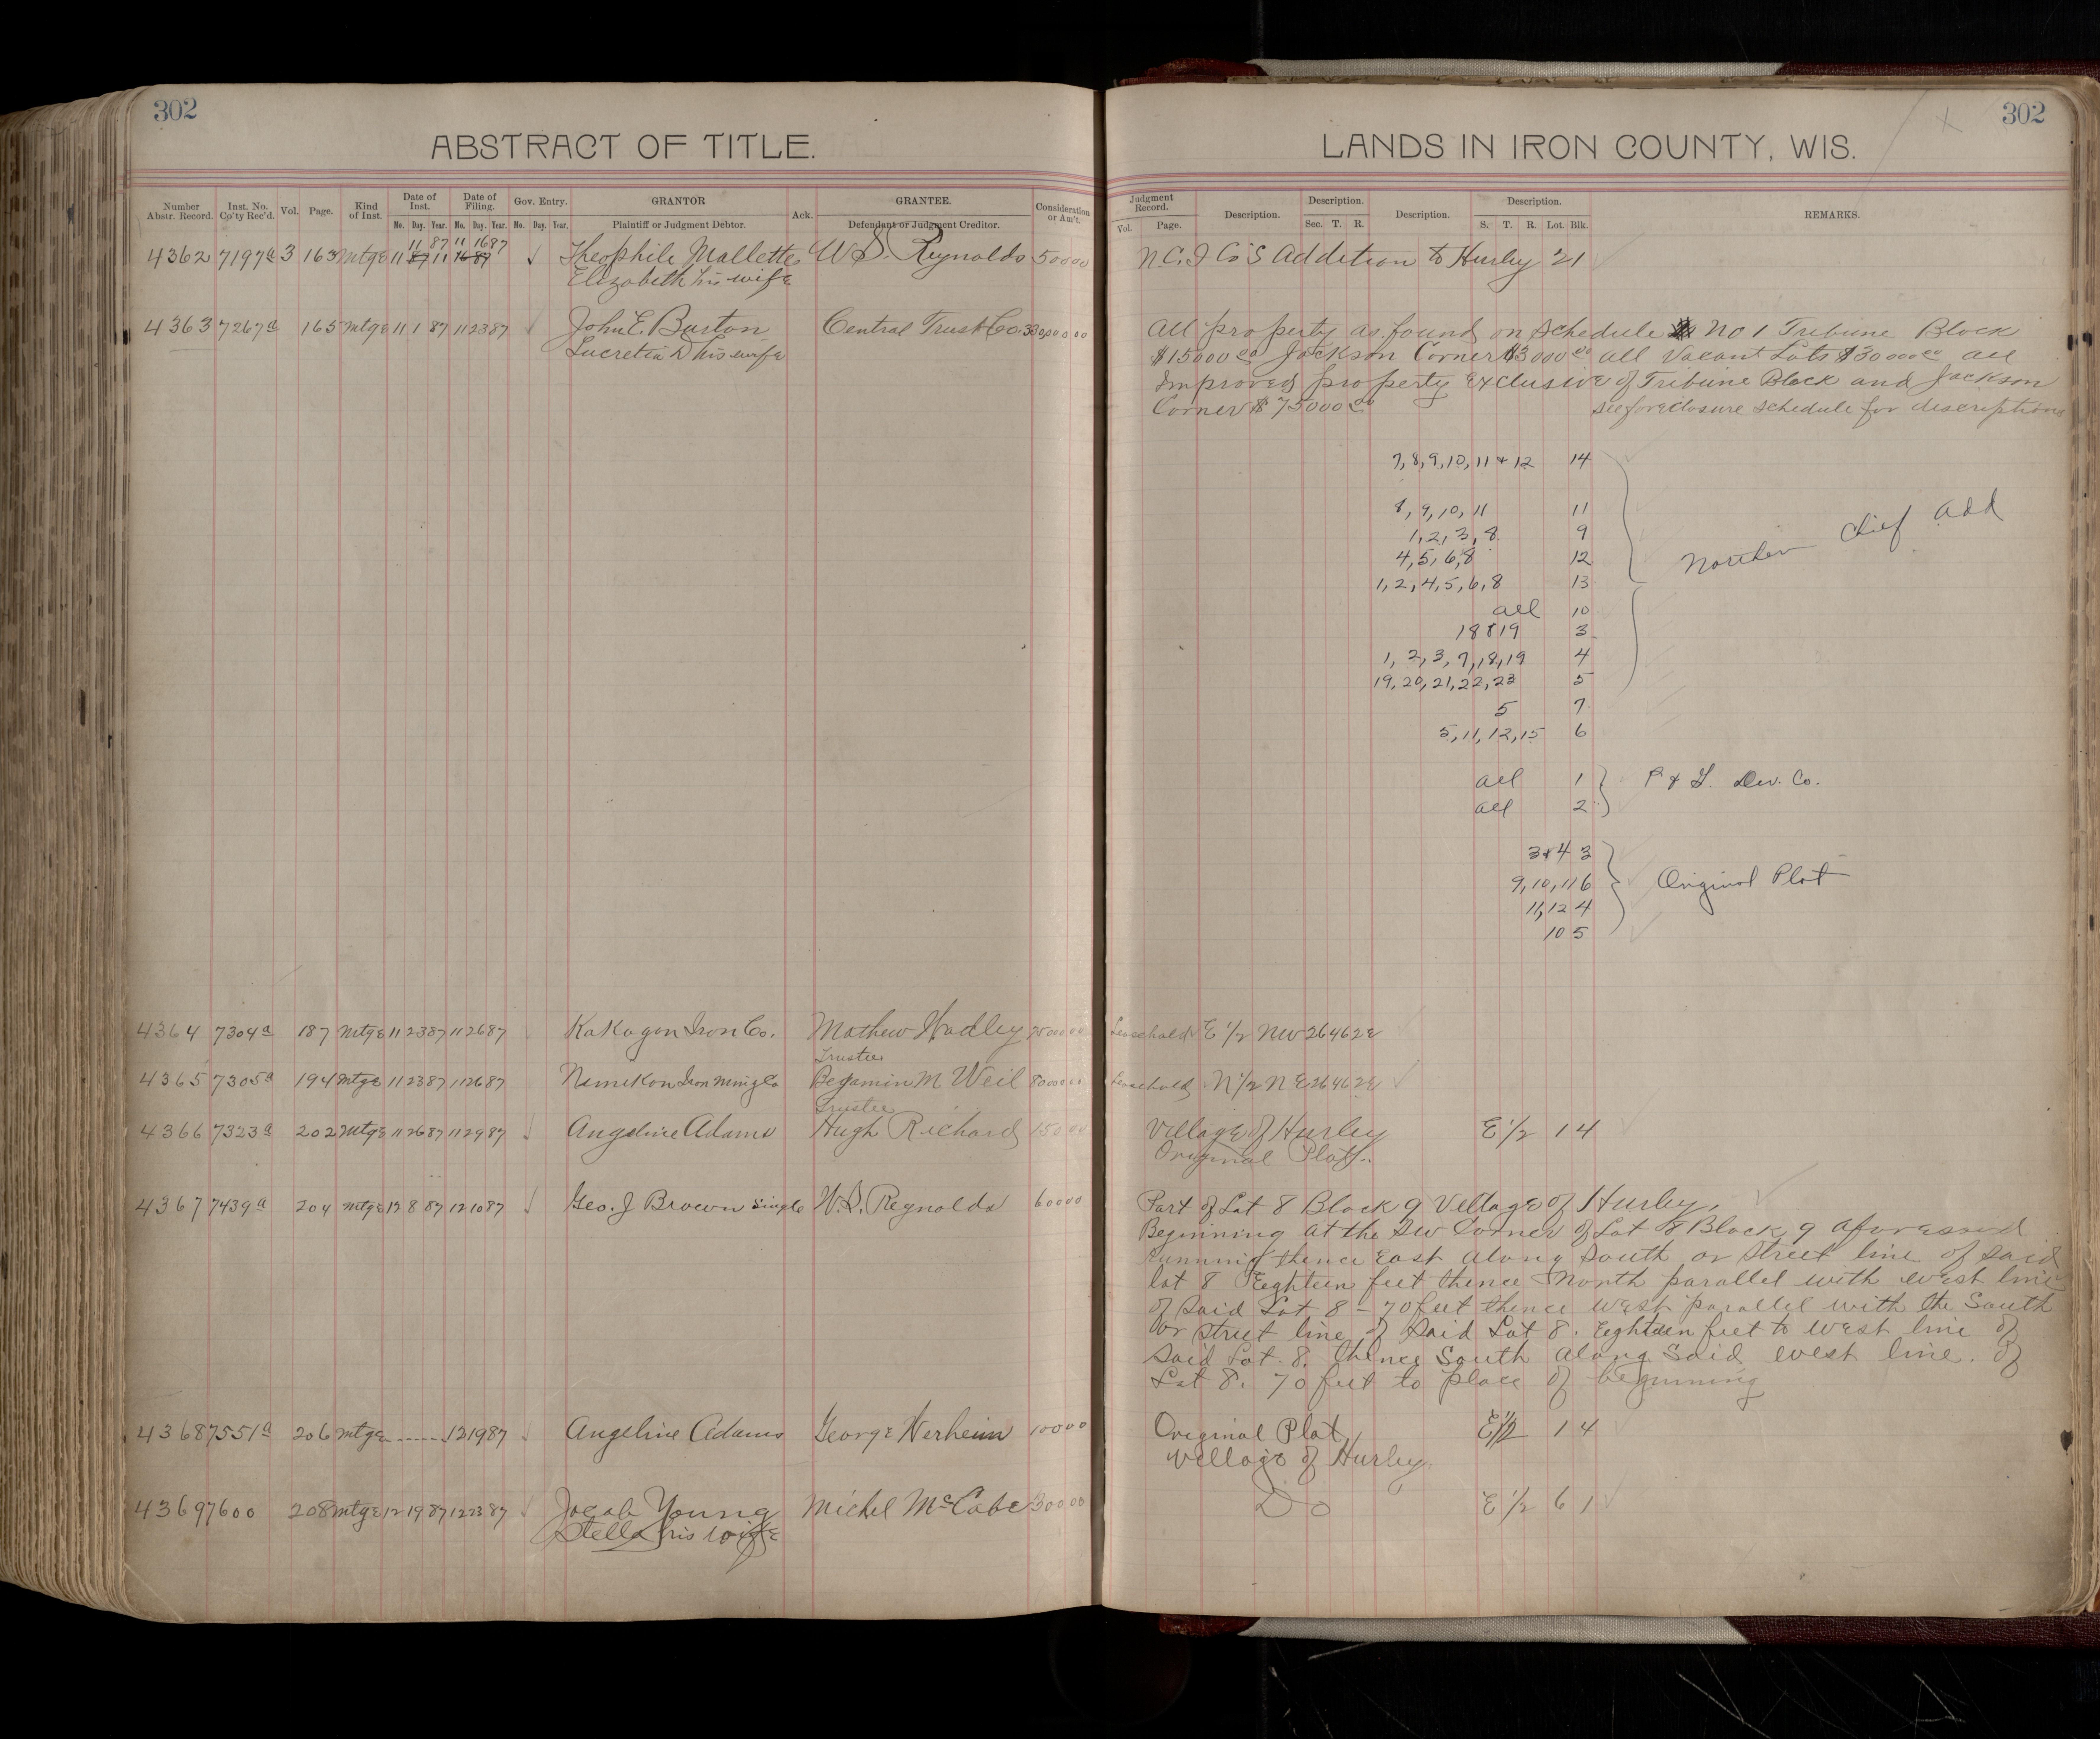 302
ABSTRACT OF TITLE.
Number Abstr. Record. Inst. No. Co'ty Rec'd. Vol. Page. Kind of Inst. Date of Inst. Date of Filing. Gov. Entry. GRANTOR Ack. GRANTEE. Consideration or Am't.
No. Day. Year. No. Day. Year. No. Day. Year. Plaintiff or Judgment Debtor. Defendant or Judgment Creditor.
11 87 11 1687
4362 7197a 3 163 Mtge 11 87 11 16 87 √ Theophile Mallette W S. Reynolds 50000
Elizabeth his wife
4363 7267a 165 Mtge 11 1 87 11 23 87 √ John E. Burton Central Trust Co.
Lucretia D his wife
4364 7304a 187 Mtge 11 23 87 11 26 87 Kakagon Iron Co. Mathew Hadley
Trustee
4365 7305a 194 Mtge 11 23 87 11 26 87 Nimikon Iron Ming Co Benjamin M Weil
Trustee
4366 7323a 202 Mtge 11 26 87 11 29 87 √ Angeline Adams Hugh Richard 15000
4367 7439a 204 Mtge 12 8 87 12 10 87 √ Geo. J Brown Single W.S. Reynolds 60000
4368 7551a 206 Mtge ...... 12 19 87 √ Angeline Adams George Nerheim 10000
4369 7600 208 Mtge 12 19 87 12 23 87 √ Jacob Young Michel McCabe 30000
Stella his wife
302
LANDS IN IRON COUNTY, WIS.
Judgment Record. Description. Description. Description. Description. REMARKS.
Vol. Page. Sec. T. R. S. T. R. Lot. Blk.
N.C.I Co's Addition to Hurley 21
All property as found on Schedule No 1 Tribune Block
$15000 00 Jackson Corner $3000 00 all Vacant Lots $30000 00 all
Improved property exclusive of Tribune Block and Jackson
Corner $75000 00 see foreclosure schedule for descriptions
7,8,9,10,11 & 12 14
8,9,10,11 11
1,2,3,8 9
4,5,6,8 12
Northern Chief Add
1,2,4,5,6,8 13
all 10
18 & 19 3
1,2,3,7,18,19 4
19,20,21,22,23 5
5 7
5,11,12,15 6
all 1 P & G. Dev. Co.
all 2
3 & 4 3
9,10,11 6 Original Plat
11,12 4
10 5
Leasehold E 1/2 NW 26 46 2E
Leasehold N 1/2 NE 26 46 2E
Village of Hurley E 1/2 1 4
Original Plat.
Part of Lot 8 Block 9 Village of Hurley.
Beginning at the SW Corner of Lot 8 Block 9 aforesaid
running thence East along South or street line of said
lot 8 Eighteen feet thence North parallel with west line
of said Lot 8 - 70 feet thence west parallel with the South
or street line of said Lot 8. Eighteen feet to west line of
said Lot 8. thence South along said west line of
Lot 8. 70 feet to place of beginning
Original Plat E 1/2 1 4
Village of Hurley
Do E 1/2 6 1